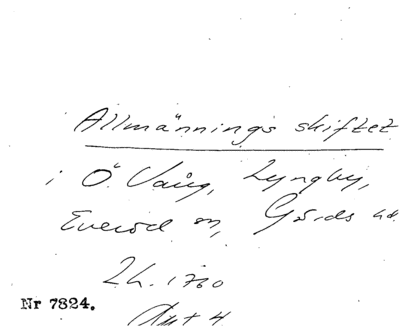 Allmännings skiftet
i Ö. Vång, Lyngby,
Everöd sn, Gärds hd.
Lh. 1760
Nr 7824.
Akt 4